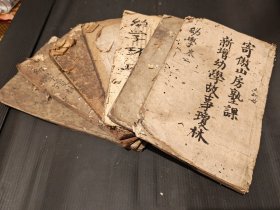 寄傲山房塾課
新增幼學故事瓊林
幼學
幼學